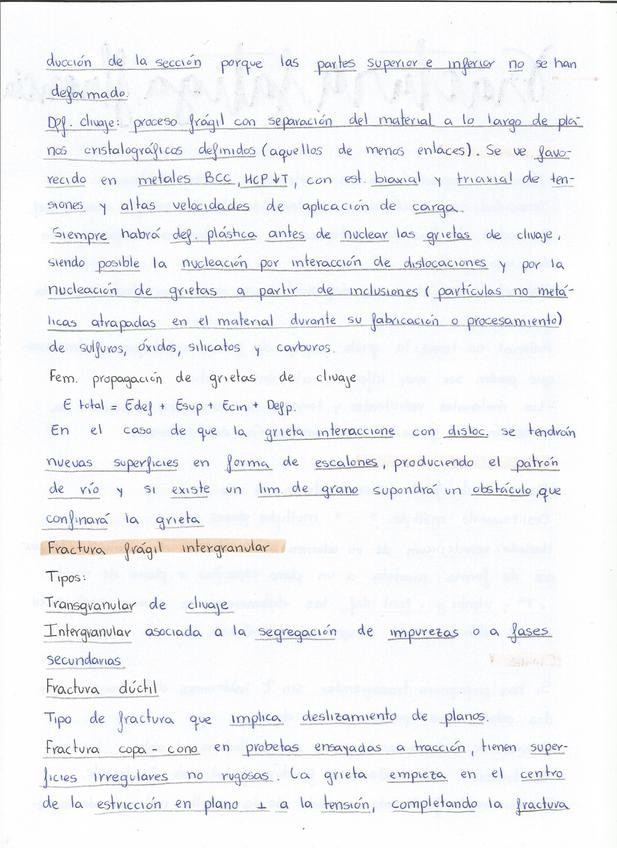 ducción de la sección porque las partes superior e inferior no se han
deformado.
Def. clivaje: proceso frágil con separación del material a lo largo de pla-
nos cristalográficos definidos (aquellos de menos enlaces). Se ve favo-
recido en metales BCC, HCP ↓T, con est. biaxial y triaxial de ten-
siones y altas velocidades de aplicación de carga.
Siempre habrá def. plástica antes de nuclear las grietas de clivaje,
siendo posible la nucleación por interacción de dislocaciones y por la
nucleación de grietas a partir de inclusiones (partículas no metá-
licas atrapadas en el material durante su fabricación o procesamiento)
de sulfuros, óxidos, silicatos y carburos.
Fem. propagación de grietas de clivaje
E total = Edef + Esup + Ecin + Defp.
En el caso de que la grieta interaccione con disloc. se tendrán
nuevas superficies en forma de escalones, produciendo el patrón
de río y si existe un lim. de grano supondrá un obstáculo, que
confinará la grieta
Fractura frágil intergranular
Tipos:
Transgranular de clivaje
Intergranular asociada a la segregación de impurezas o a fases
secundarias
Fractura dúctil
Tipo de fractura que implica deslizamiento de planos.
Fractura copa - cono en probetas ensayadas a tracción, tienen super-
ficies irregulares no rugosas. La grieta empieza en el centro
de la estricción en plano ⊥ a la tensión, completando la fractura